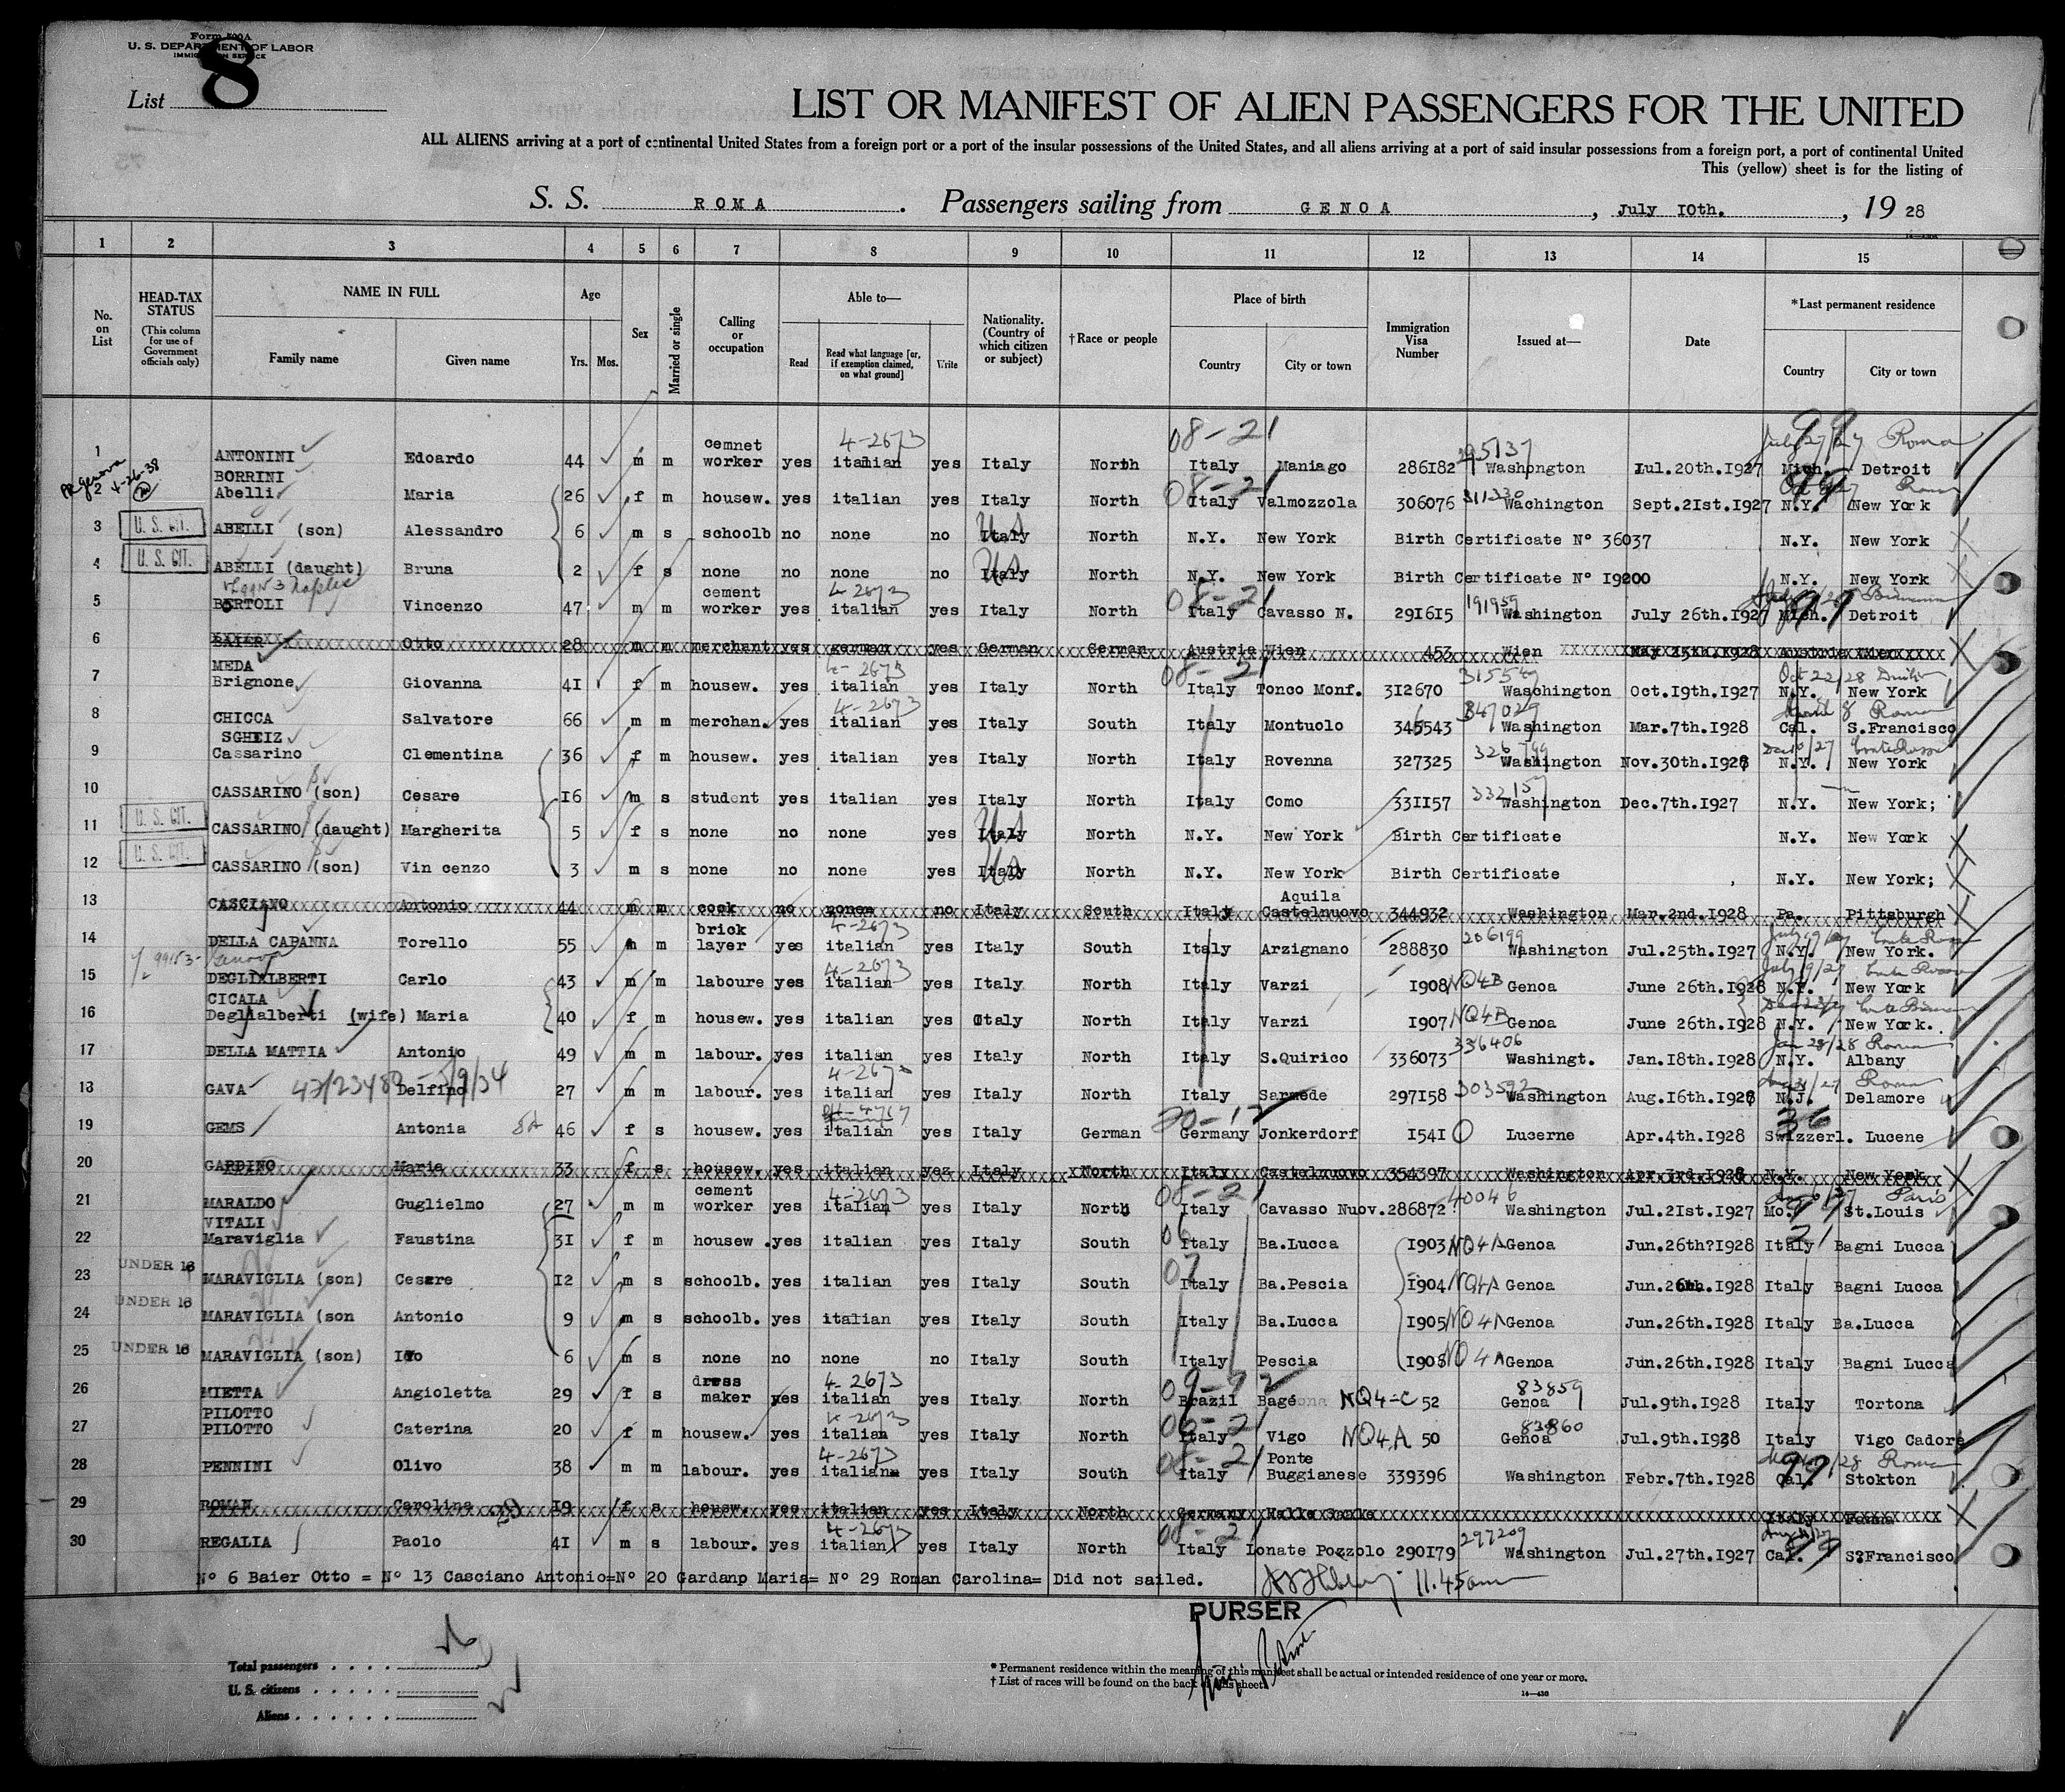 Form 500A
U. S. DEPARTMENT OF LABOR
IMMIGRATION SERVICE
List 8
LIST OR MANIFEST OF ALIEN PASSENGERS FOR THE UNITED
ALL ALIENS arriving at a port of continental United States from a foreign port or a port of the insular possessions of the United States, and all aliens arriving at a port of said insular possessions from a foreign port, a port of continental United
This (yellow) sheet is for the listing of
S. S. ROMA. Passengers sailing from GENOA, July 10th., 19 28
1 2 3 4 5 6 7 8 9 10 11 12 13 14 15
No. on List
HEAD-TAX STATUS (This column for use of Government officials only)
NAME IN FULL
Family name Given name
Age
Yrs. Mos.
Sex
Married or single
Calling or occupation
Able to—
Read Read what language [or, if exemption claimed, on what ground] Write
Nationality. (Country of which citizen or subject)
†Race or people
Place of birth
Country City or town
Immigration Visa Number
Issued at—
Date
*Last permanent residence
Country City or town
08-21
1 ANTONINI Edoardo 44 m m cemnet worker yes 4-2673 italian yes Italy North Italy Maniago 286182 Washpngton Iul.20th.1927 Mich. Detroit
PR genova 4-26-38
2 BORRINI Abelli Maria 26 f m housew. yes italian yes Italy North Italy Valmozzola 306076 Wachington Sept.2Ist.1927 N.Y. New York
3 U. S. CIT. ABELLI (son) Alessandro 6 m s schoolb no none no Italy North N.Y. New York Birth Certificate N° 36037 N.Y. New York
4 U. S. CIT. ABELLI (daught) Bruna 2 f s none no none no Italy North N.Y. New York Birth Certificate N° I9200 N.Y. New York
5 BERTOLI Vincenzo 47 m m cement worker yes 4-2673 italian yes Italy North Italy Cavasso N. 29I6I5 191959 Washington July 26th.1927 Mich. Detroit
6 BAIER Otto 28 m m merchant yes german yes German German Austria Wien 453 Wien May 25th.1928 Austria Wien
7 MEDA Brignone Giovanna 4I f m housew. yes 4-2673 italian yes Italy North Italy Tonco Monf. 3I2670 Waschington Oct.I9th.I927 N.Y. New York
8 CHICCA Salvatore 66 m m merchan. yes 4-2673 italian yes Italy South Italy Montuolo 345543 347029 Washington Mar.7th.I928 Cal. S.Francisco
9 SGHEIZ Cassarino Clementina 36 f m housew. yes italian yes Italy North Italy Rovenna 327325 Washington Nov.30th.I928 N.Y. New York
10 CASSARINO (son) Cesare I6 m s student yes italian yes Italy North Italy Como 33II57 Washington Dec.7th.I927 N.Y. New York;
11 U. S. CIT. CASSARINO (daught) Margherita 5 f s none no none yes Italy North N.Y. New York Birth Certificate N.Y. New York
12 U. S. CIT. CASSARINO (son) Vin cenzo 3 m s none no none yes Italy North N.Y. New York Birth Certificate N.Y. New York;
13 CASCIANO Antonio 44 m m cook no nonen no Italy South Italy Aquila Castelnuovo 344932 Washington Mar.2nd.I928 Pa. Pittsburgh
14 DELLA CAPANNA Torello 55 m m brick layer yes 4-2673 italian yes Italy South Italy Arzignano 288830 206199 Washington Jul.25th.I927 N.Y. New York.
15 DEGLIALBERTI Carlo 43 m m laboure yes 4-2673 italian yes Italy North Italy Varzi I908 NQ4B Genoa June 26th.I928 N.Y. New York
16 CICALA Deglialberti (wife) Maria 40 f m housew. yes italian yes Italy North Italy Varzi I907 NQ4B Genoa June 26th.I928 N.Y. New York.
17 DELLA MATTIA Antonio 49 m m labour. yes italian yes Italy North Italy S.Quirico 336073 336406 Washingt. Jan.I8th.I928 N.Y. Albany
18 GAVA Delfino 27 m m labour. yes italian yes Italy North Italy Sarmede 297I58 303592 Washington Aug.I6th.I928 N.J. Delamore
19 GEMS Antonia 46 f s housew. yes italian yes Italy German Germany Jonkerdorf I54I Lucerne Apr.4th.I928 Swizzerl. Lucene
20 GARDINO Maria 33 f s housew. yes italian yes Italy North Italy Castelnuovo 354397 Washington Apr.3rd.I928 N.Y. New York
21 MARALDO Guglielmo 27 m m cement worker yes 4-2673 italian yes Italy North Italy Cavasso Nuov. 286872 40046 Washington Jul.2Ist.I927 Mo. St.Louis
22 VITALI Maraviglia Faustina 3I f m housew. yes italian yes Italy South Italy Ba.Lucca I903 NQ4A Genoa Jun.26th?I928 Italy Bagni Lucca
23 UNDER 16 MARAVIGLIA (son) Cesare I2 m s schoolb. yes italian yes Italy South Italy Ba.Pescia I904 NQ4A Genoa Jun.26th.I928 Italy Bagni Lucca
24 UNDER 16 MARAVIGLIA (son Antonio 9 m s schoolb. yes italian yes Italy South Italy Ba.Lucca I905 NQ4A Genoa Jun.26th.I928 Italy Ba.Lucca
25 UNDER 16 MARAVIGLIA (son) Ivo 6 m s none no none no Italy South Italy Pescia NQ4A Genoa Jun.26th.I928 Italy Bagni Lucca
26 MIETTA Angioletta 29 f s dress maker yes 4-2673 italian yes Italy North Brazil Bagé NQ4-C 52 83859 Genoa Jul.9th.I928 Italy Tortona
27 PILOTTO PILOTTO Caterina 20 f m housew. yes 4-2673 italian yes Italy North Italy Vigo NQ4A 50 83860 Genoa Jul.9th.I928 Italy Vigo Cadore
28 PENNINI Olivo 38 m m labour. yes 4-2673 italian yes Italy South Italy Ponte Buggianese 339396 Washington Febr.7th.I928 Cal. Stokton
29 ROMAN Carolina I9 f s housw. yes italian yes Italy North Germany Halle Italy
30 REGALIA Paolo 4I m s labour. yes 4-2673 italian yes Italy North Italy Lonate Pozzolo 290I79 297209 Washington Jul.27th.I927 Cal. S.Francisco
N° 6 Baier Otto = N° 13 Casciano Antonio=N° 20 Gardanp Maria= N° 29 Roman Carolina= Did not sailed. 11.45am
PURSER
Total passengers
U. S. citizens
Aliens
* Permanent residence within the meaning of this manifest shall be actual or intended residence of one year or more.
† List of races will be found on the back of this sheet.
14—430